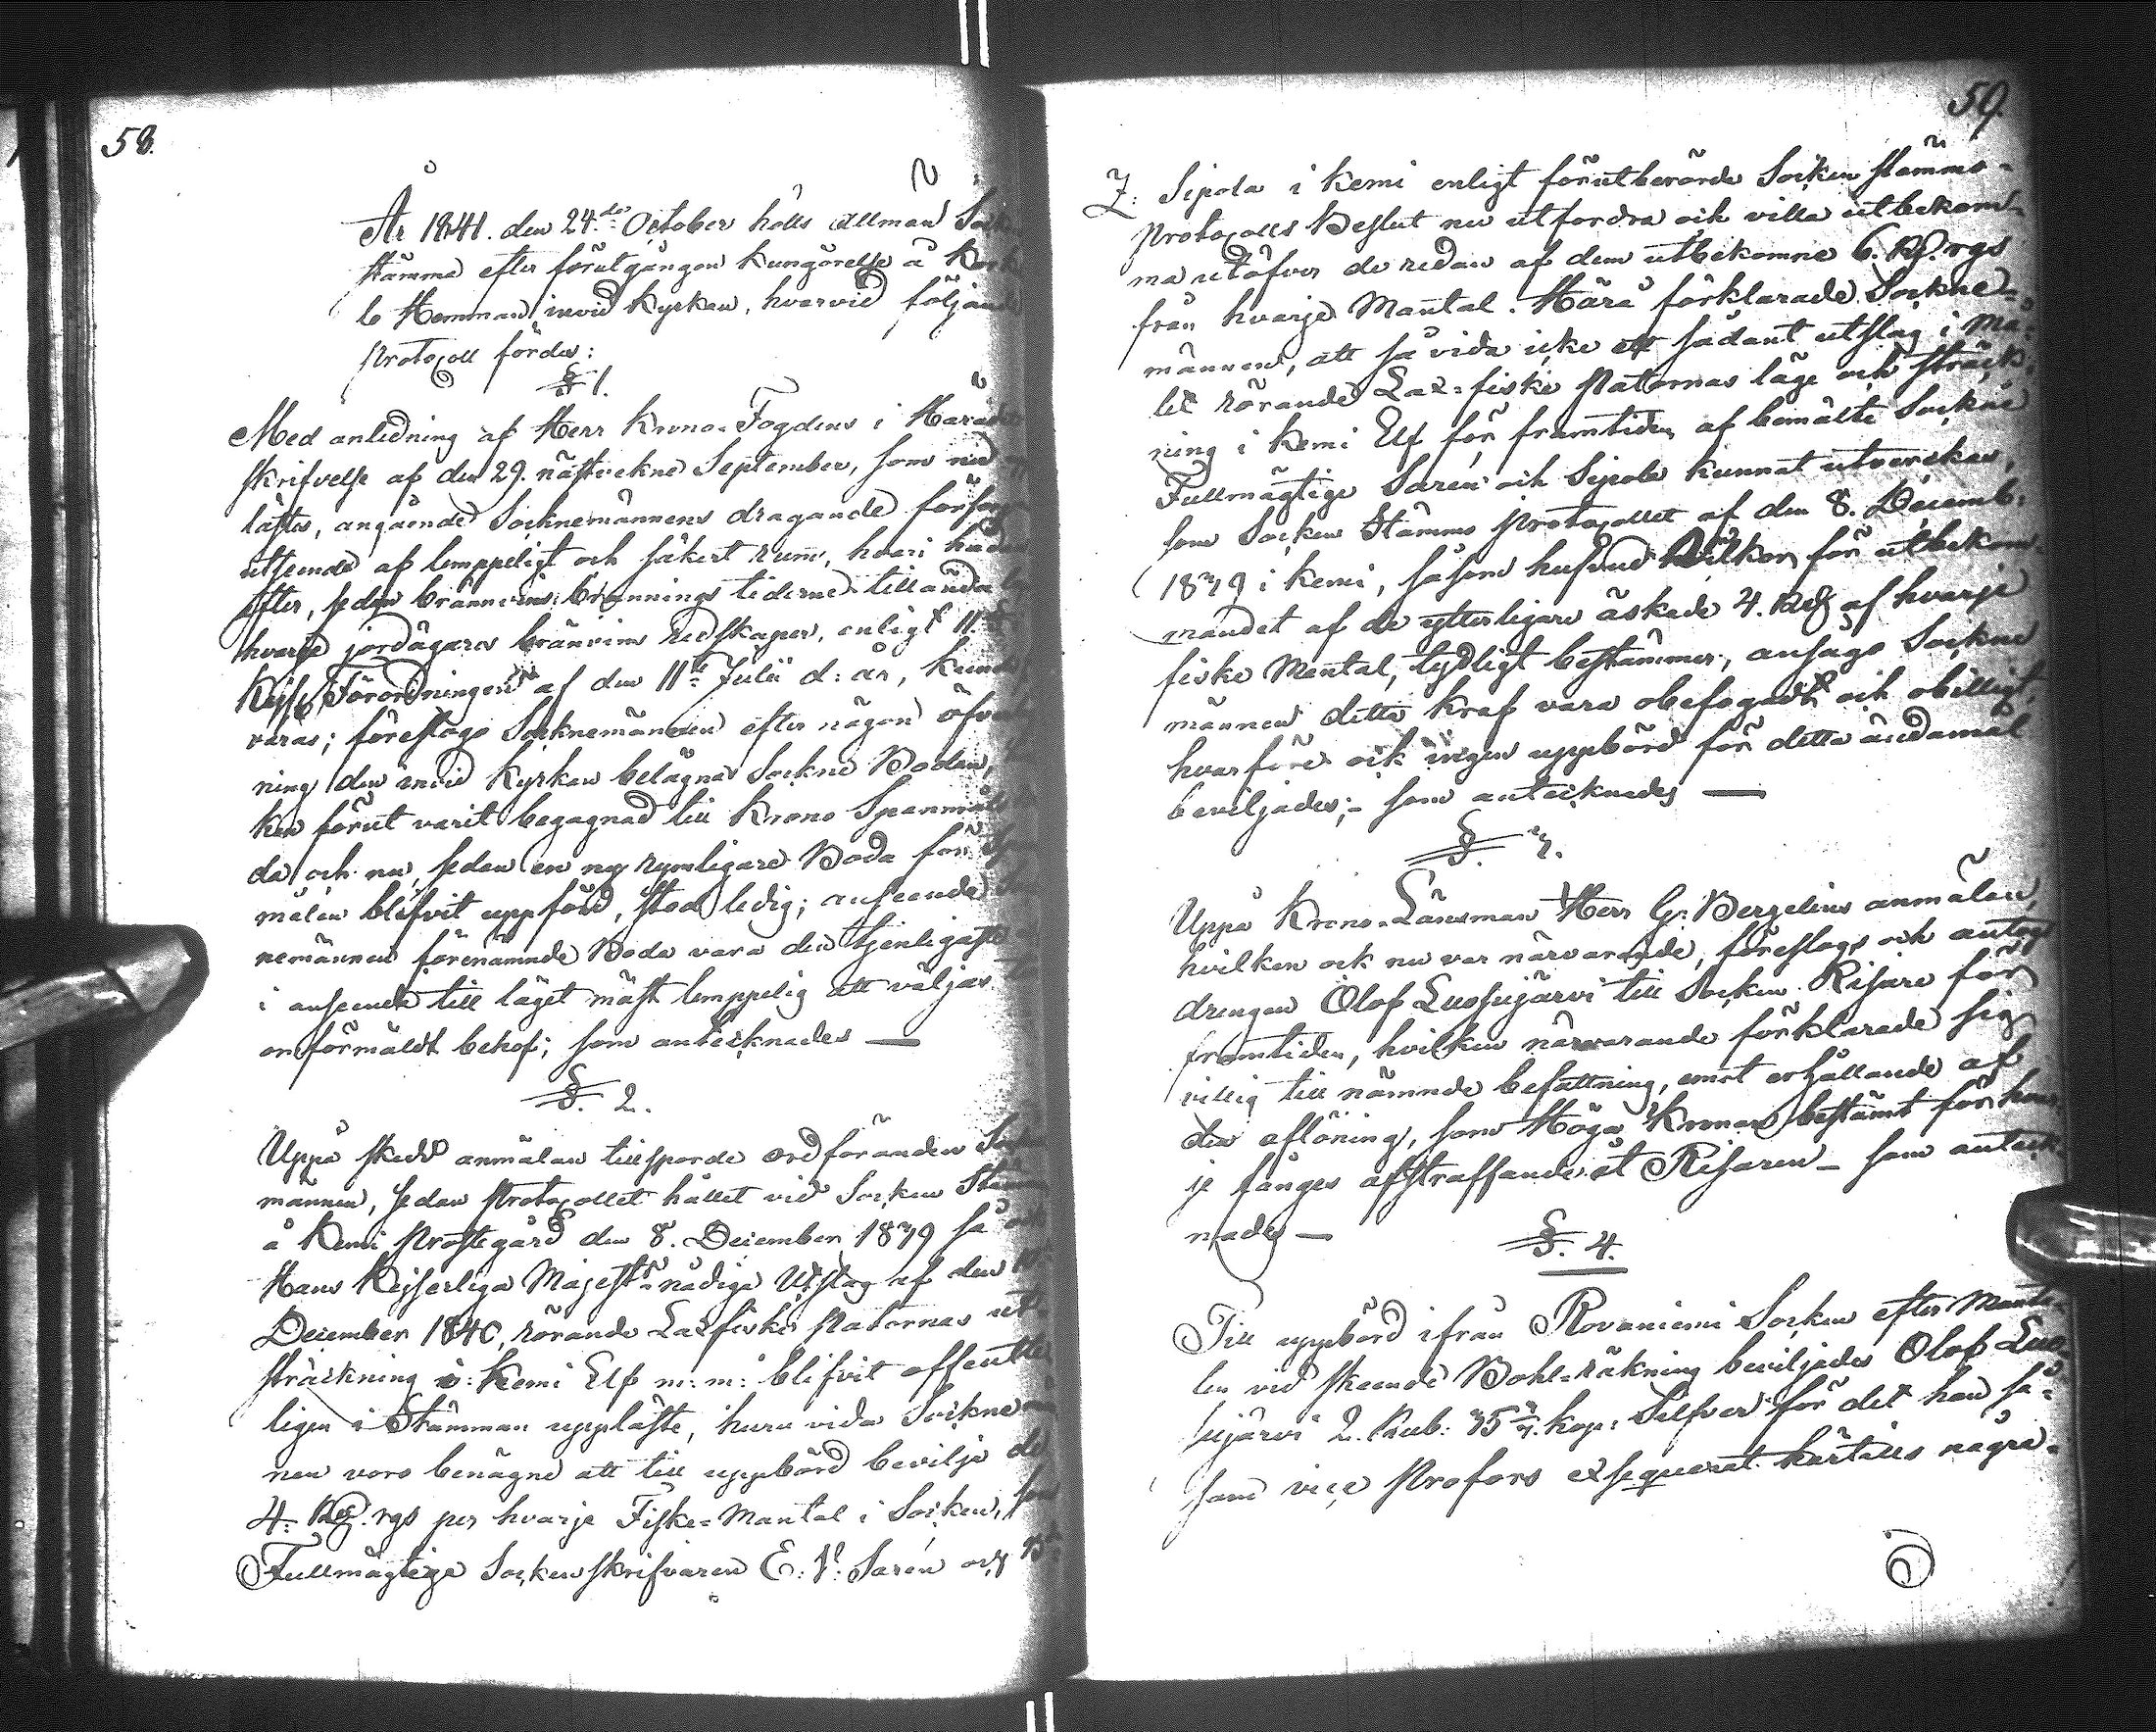 58.
År 1841. den 24.de October hölls allmän Sock
stämma efter förutgången kungörelse å Kork
lo Hemman invid Kyrkan, hvarvid följande
Protocoll fördes:
§ 1.
Med anledning af Herr Krono-Fogdens i Häradet
skrifvelse af den 29. nästvekne September, som nu
lästes, angående Socknemännens dragande försorg
utseende af lemppeligt och säkert rum, hvari här
efter, sedan bränvins bränningstiderne tilländ
hvarje jordägares bränvins redskaper, enligt 11.
Kejs. Förordningen af den 11te Julii d: år, kunde
varas; föreslogo Socknemännen efter någon öfver
ning den invid Kyrkan belägna Sockne Bodan,
ken förut varit begagnad till Krono Spanmåls
da och nu, sedan en ny rymligare Boda för Span
målen blifvit uppförd, stod ledig; anseende
nemännen förenämnde Boda vara den tjenligaste
i anseende till läget mäst lemppelig att väljas
omförmäldt behof; som antecknades —
§. 2.
Uppå skedd anmälan tillsporde ordföranden Sock
männen, sedan Protocollet hållet vid Socken Stämma
å Kemi Prostegård den 8. December 1839 så
Hans Kejserliga Majestts nådiga Utslag af den
December 1840, rörande Laxfiske Patornas ut-
sträckning i Kemi Elf m: m: blifvit offentle
ligen i Stämman uppläste, huru vida Sockne
nen voro benägne att till uppbörd bevilja de
4. rgs per hvarje Fiske-Mantal i Socken, som
Fullmägtige Sockenskrifvaren E. V. Sarén och
59.
Z: Sipola i Kemi enligt förutberörde Socken stämmo-
Protocolls Beslut nu utfordra och villa utbekom-
ma utöfver de redan af dem utbekomne 6. rgs
från hvarje Mantal. Härå förklarade Sockne-
männen, att så vida icke ett sådant utslag i må-
let rörande Lax-fiske Patornas läge och sträck-
ning i Kemi Elf för framtiden af bemälte Sockne
Fullmägtige Sarén och Sipola kunnat utverckas,
som Socken Stämmo Protocollet af den 8. Decemb:
1839 i Kemi, såsom hufvud vilkor för utbekom-
mandet af de ytterligare äskade 4. af hvarje
fiske Mantal, tydligt bestämmer, ansågo Sockne
männen detta kraf vara obefogadt och obilligt,
hvarföre ock ingen uppbörd för detta ändamål
beviljades; - som antecknades —
§. 3.
Uppå Krono-Länsman Herr G: Bergelins anmälan,
hvilken ock nu var närvarande, föreslogs och antogs
drengen Olof Luosujärvi till Socken Risare för
framtiden, hvilken närvarande förklarade sig
villig till nämnde befattning, emot erhållande af
den aflöning, som Höga Kronan bestämt för hvar-
je fånges afstraffande åt Risaren - som anteck-
nades —
§. 4.
Till uppbörd ifrån Rovaniemi Socken efter Manta-
len vid skeende Bohl-räkning beviljades Olof Luo-
sujärvi 2. Rub: 35 kop: Silfver för det han så-
som vice Profors exsequerat härtills någre